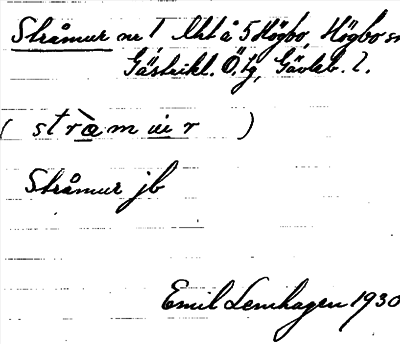 Stråmur nr 1 Uht å 5 Högbo, Högbo sn
Gästrikl. Ö. tg, Gävleb. l.
( stràmur )
Stråmur jb
Emil Lenhagen 1930